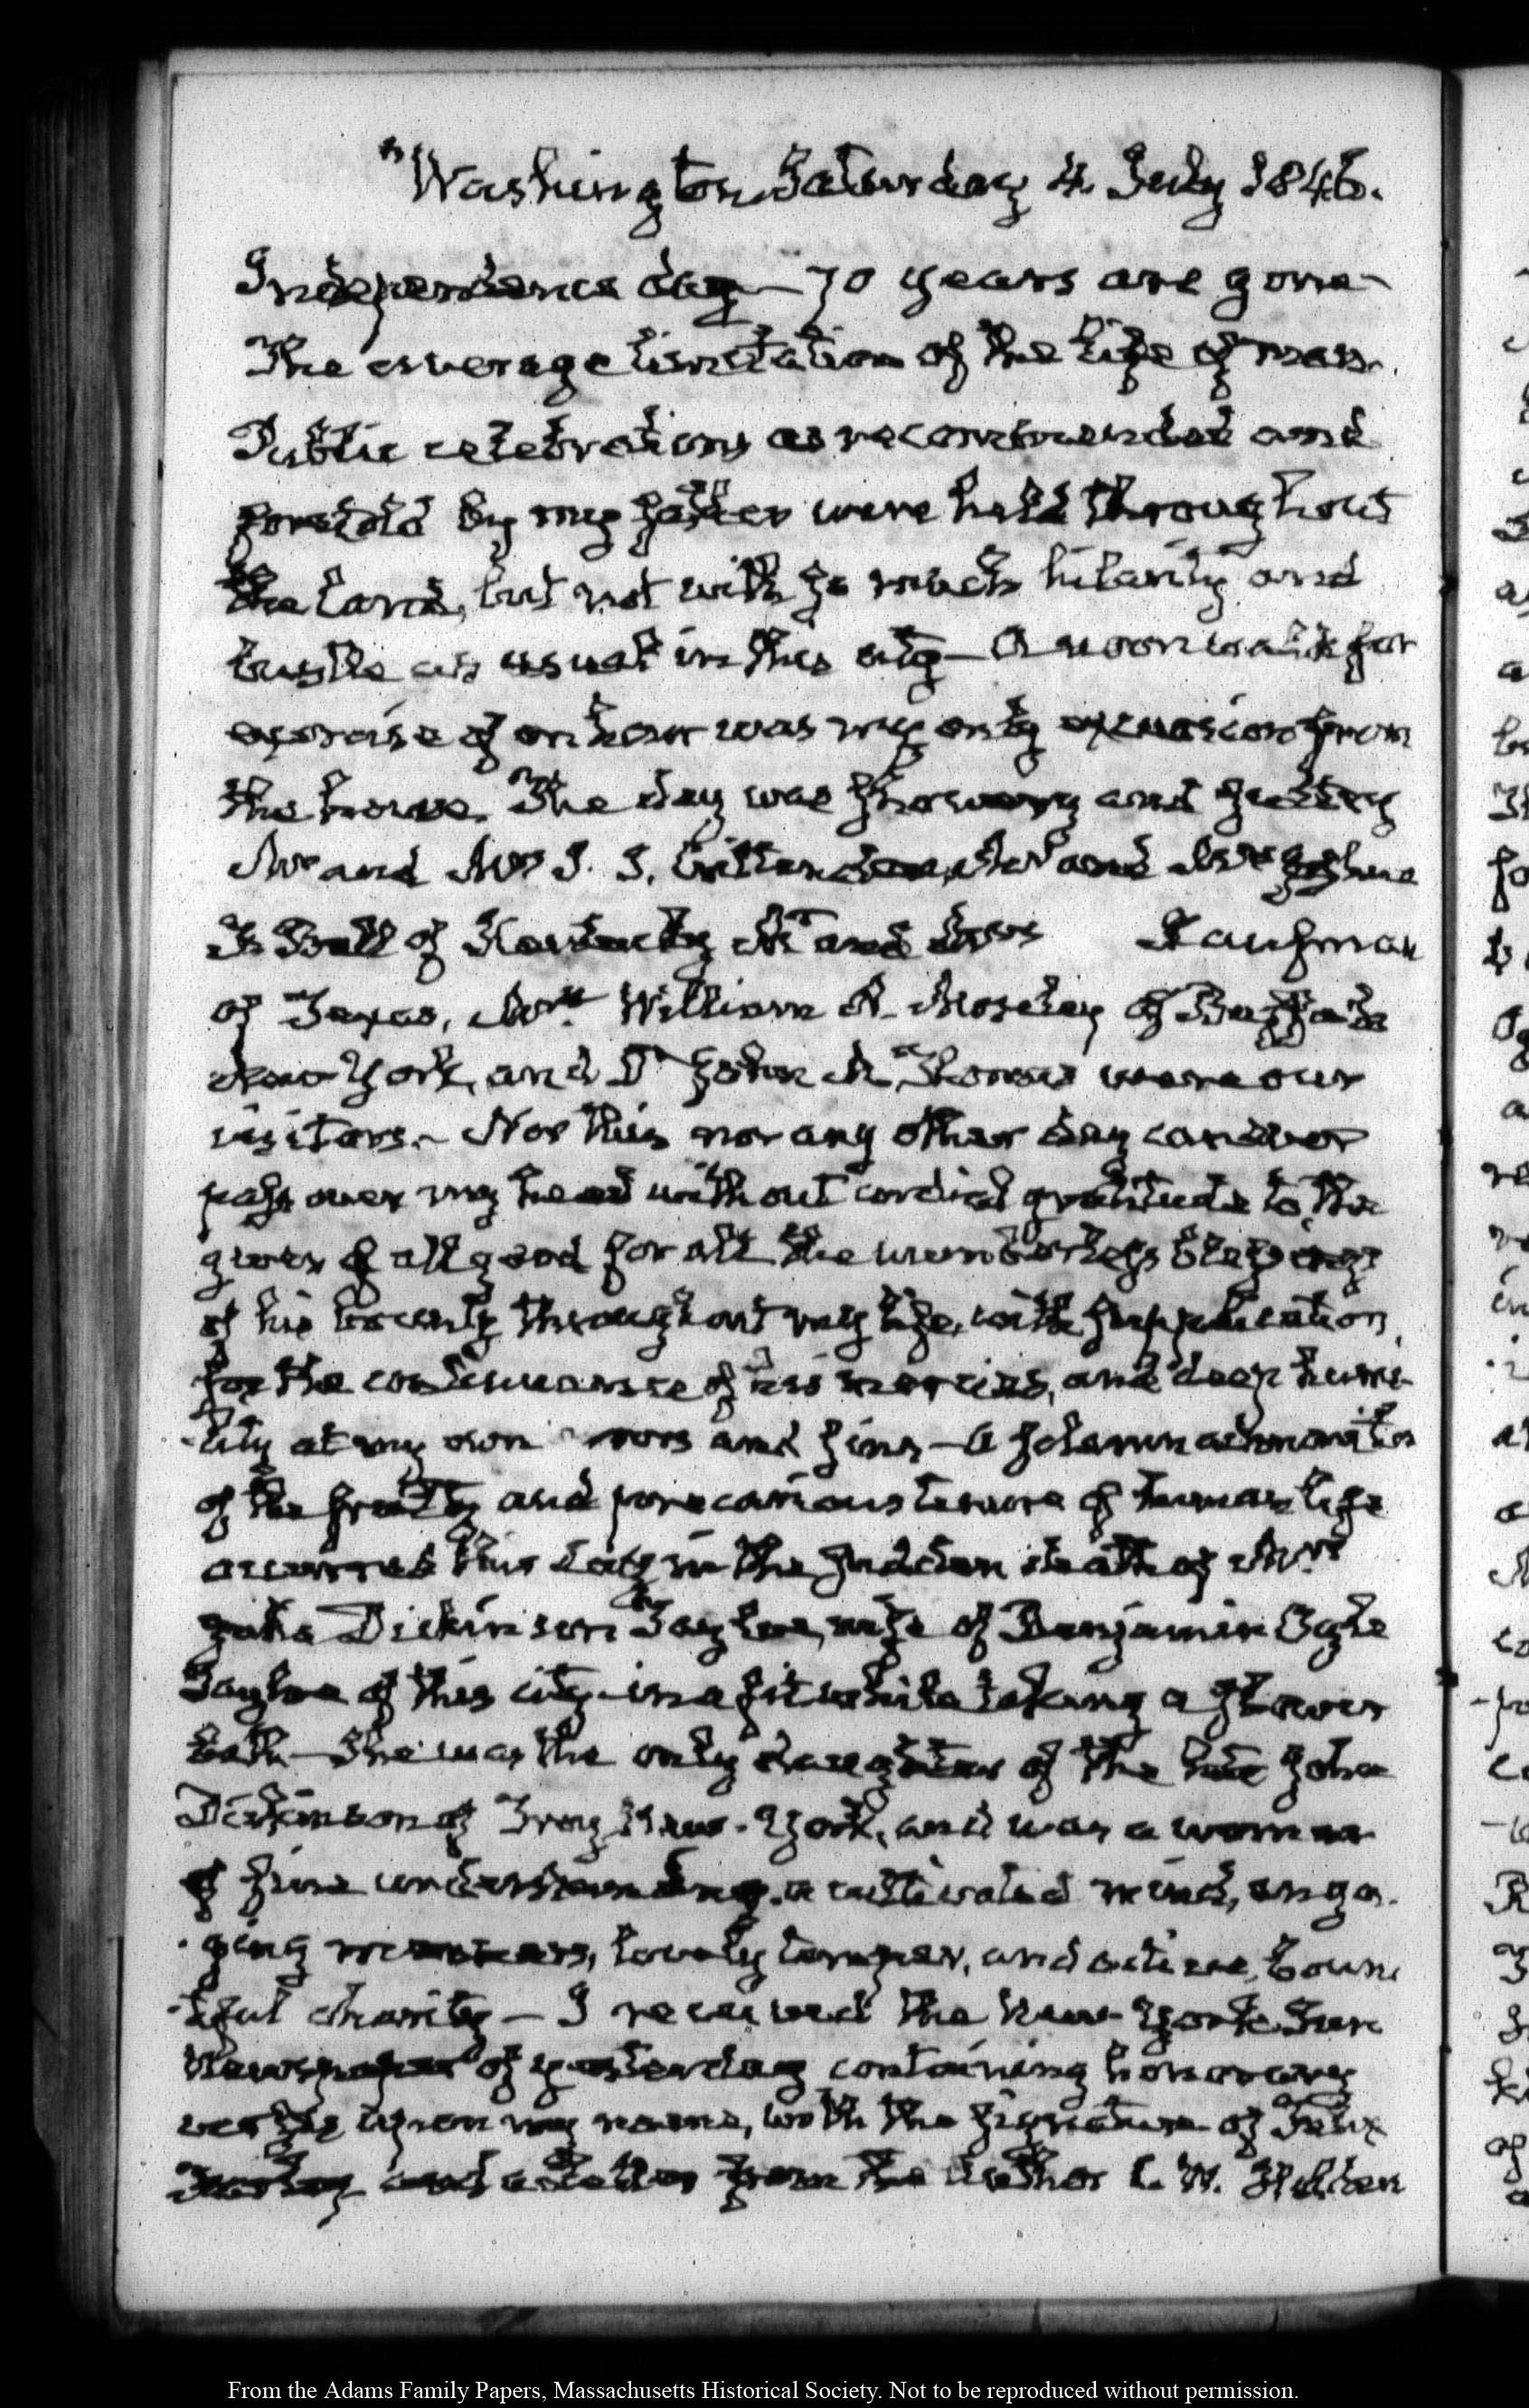 Washington Saturday 4. July 1846.
Independence day — 70 years are gone —
The average limitation of the life of man.
Public celebrations as recommended and
foretold by my father were held throughout
the land, but not with so much hilarity and
bustle as usual in this city — A noon walk for
exercise of an hour was my only excursion from
the house. The day was showery and sultry
Mr and Mrs J. J. Crittenden, Mr and Mrs Joshua
F. Bell of Kentucky Mr and Mrs Kaufman
of Texas, Mrs William A. Moseley of Buffalo
New York, and Dr John M. Thomas were our
visitors. — Nor this nor any other day can ever
pass over my head without cordial gratitude to the
giver of all good for all the numberless blessings
of his bounty throughout my life, with supplication
for the continuance of his mercies, and deep humi-
-lity at my own errors and sins — A solemn admonition
of the frailty and precarious tenure of human life
occurred this day in the sudden death of Mrs
Julia Dickinson Tayloe, wife of Benjamin Ogle
Tayloe of this city — in a fit while taking a shower
bath — She was the only daughter of the late John
Dickinson of Troy New-York, and was a woman
of fine understanding, a cultivated mind, enga-
-ging manners, lovely temper, and active, bounti
-ful charity — I received the New-York Sun
Newspaper of yesterday containing honorary
verses upon my name, with the signature of
and a letter from the Author C. W. Holden
From the Adams Family Papers, Massachusetts Historical Society. Not to be reproduced without permission.